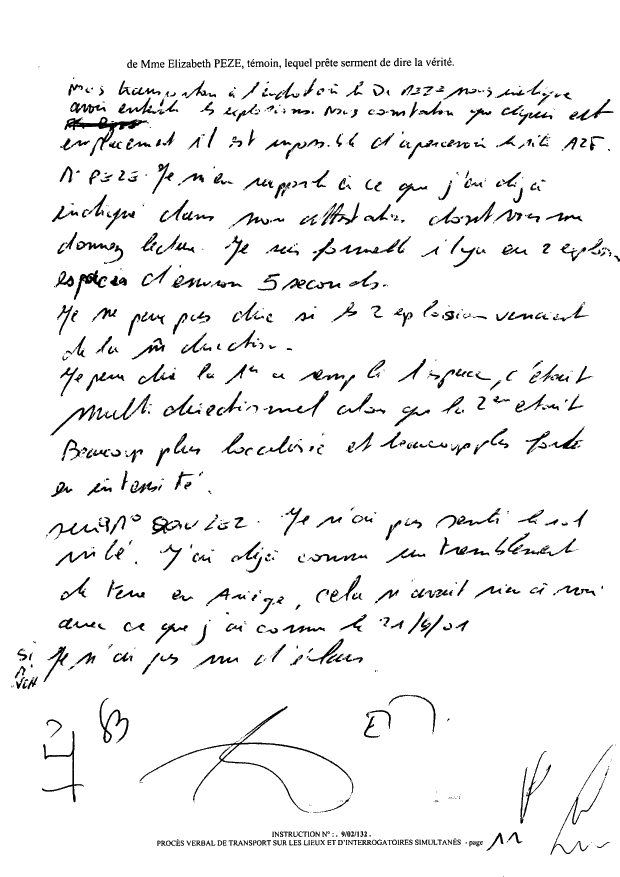 de Mme Elizabeth PEZE, témoin, lequel prête serment de dire la vérité.
Nous transportons à l'endroit où nous indique
avoir entendu les explosions. Nous constatons que depuis cet
emplacement il est impossible d'apercevoir le site AZF.
PEZE. Je m'en rapporte à ce que j'ai déjà
indiqué dans mon attestation dont vous me
donnez lecture. Je suis formelle il y a eu 2 explosions
espacées d'environ 5 secondes.
Je ne peux pas dire si les 2 explosions venaient
de la m direction.
Je peux dire la 1ère a rempli l'espace, c'était
multidirectionnel alors que la 2ème était
Beaucoup plus localisée et beaucoup plus forte
en intensité.
Je n'ai pas senti le sol
J'ai déjà connu un tremblement
de terre en Ariège, cela n'avait rien à voir
avec ce que j'ai connu le 21/9/01
Je n'ai pas vu d'éclair
INSTRUCTION N° : . 9/02/132 .
PROCÈS VERBAL DE TRANSPORT SUR LES LIEUX ET D'INTERROGATOIRES SIMULTANÉS - page 11